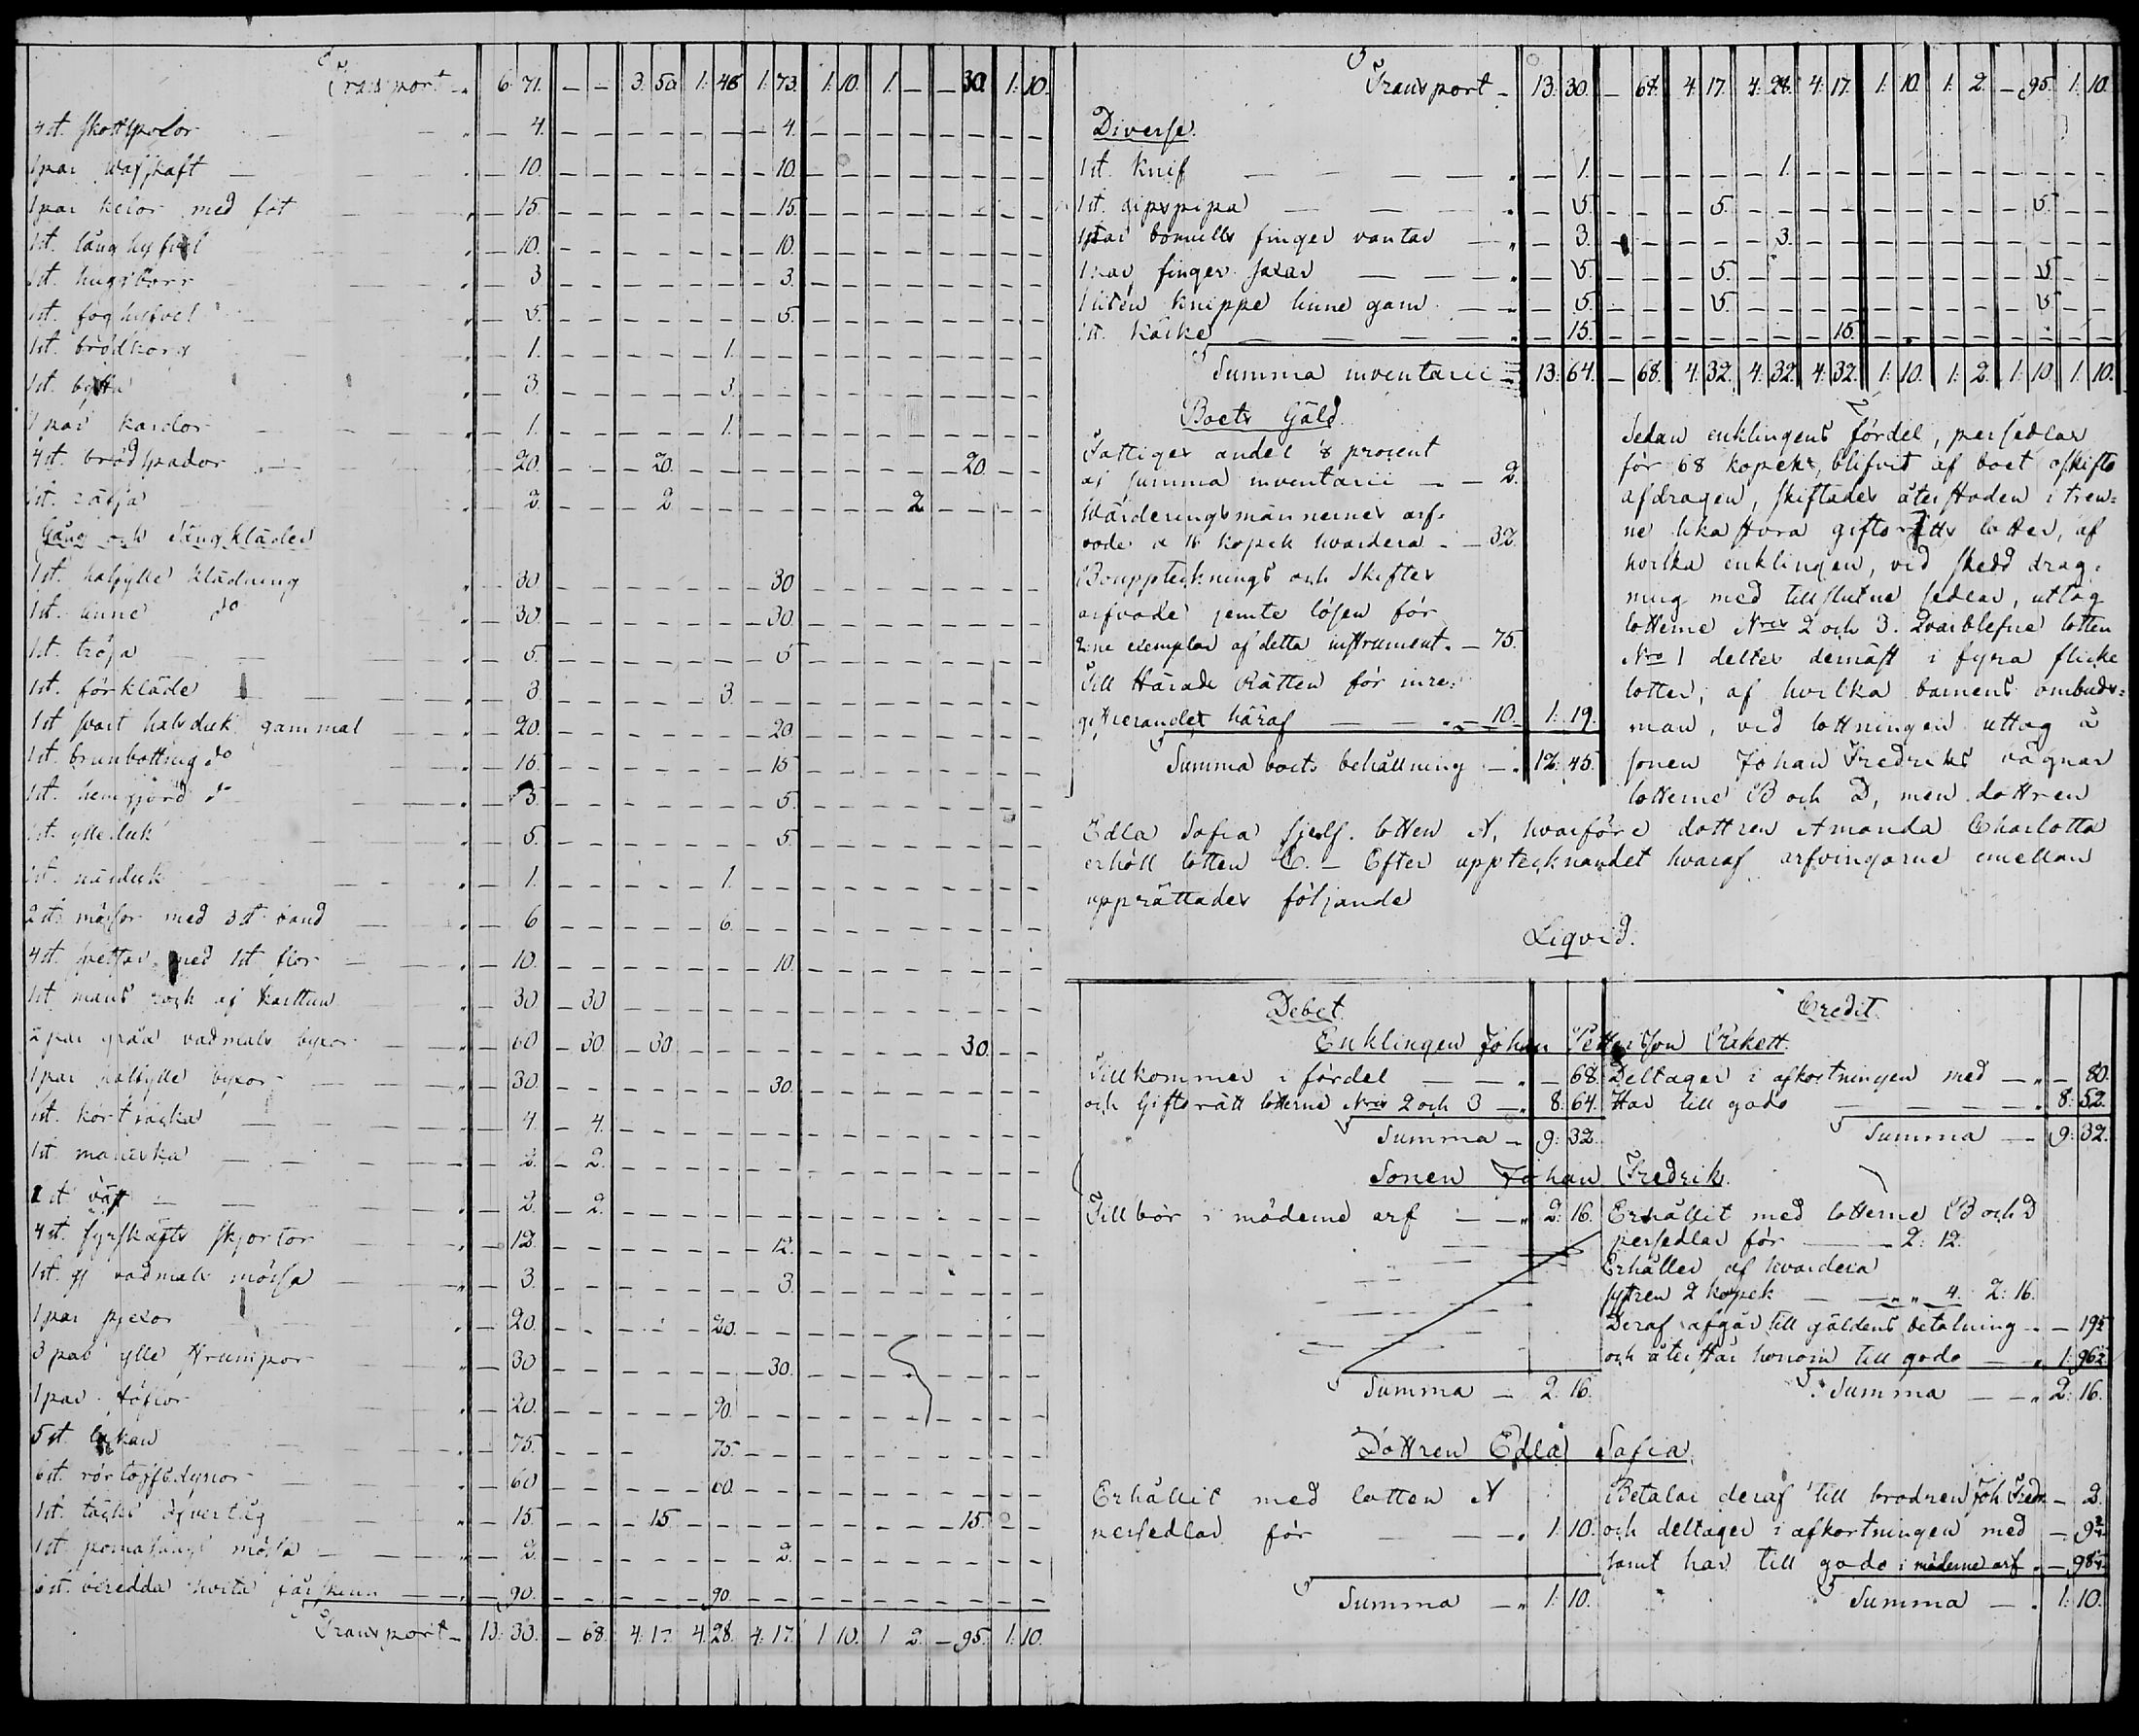 Transport 6 71. — — 3. 50 1. 46 1. 73. 1. 10. 1. — — 30. 1. 10.
4 st. skottspolor — 4. — 4.
1 par wäfskaft — 10. — 10.
1 par kelor med fot — 15. — 15.
1 st. lång hyfvel — 10. — 10.
1 st. hugsborr — 3 — 3.
1 st. foghyfvel — 5. — 5.
1 st. brödkorg — 1. — 1.
1 st. bytta — 3. — 3.
1 par kardor — 1. — 1.
4 st. brödspador — 20. — 20. — 20.
1 st. räfsa — 2. — 2 — 2
Gång och Sängkläder
1 st. halfylle klädning — 30 — 30
1 st. linne do — 30. — 30.
1 st. tröja — 5. — 5
1 st. förkläde — 3 — 3.
1 st svart halsduk gammal — 20. — 20
1 st. brunbottnig do — 15. — 15
1 st. hemgjord do — 5. — 5.
1 st. ylleduk — 5. — 5
1 st. näsduk — 1. — 1.
2 st. mössor med 3 st. band — 6 — 6.
4 st. spettsar med 1 st. flor — 10. — 10.
1 st. mans rock af karttun — 30 — 30
2 par gråa vadmals byxor — 60 — 30. — 30 — 30.
1 par halfylle byxor — 30. — 30.
1 st. kort jacka — 4. — 4.
1 st. — 2. — 2.
1 st. väst — 2. — 2.
4 st. fyrskafts skjortor — 12. — 12.
1 st. vadmals mössa — 3. — 3
1 par pjexor — 20. — 20.
3 par ylle strumpor — 30 — 30.
1 par töflor — 20. — 20.
5 st. lakan — 75. — 75.
6 st. rörtoffsdynor — 60 — 60.
1 st. täcks öfvertåg — 15. — 15. — 15.
1 st. mössa — 2. — 2.
6 st. oberedda hvita fårskinn — 90. — 90
Transport 13. 30. — 68. 4. 17. 4. 28. 4. 17. 1 10. 1 2. — 95. 1. 10.
Transport 13. 30. — 68. 4. 17. 4. 28. 4. 17. 1. 10. 1. 2. — 95. 1. 10.
Diverse.
1 st. knif — 1. — 1.
1 st. gipspipa — 5. — 5. — 5.
1 par bomulls finger vantar — 3. — 3.
1 par finger saxar — 5. — 5. — 5
1 liten knippe linne garn — 5. — 5. — 5
1 st. kälke — 15. — 15.
Summa inventarii 13: 64. — 68. 4: 32. 4: 32. 4: 32. 1: 10. 1: 2. 1: 10. 1: 10.
Boets Gäld
Fattiges andel ⅛ procent
af summa inventarii — 2.
Wärderingsmännernes arf-
vode à 16 kopek hvardera — 32.
Bouppteknings och Skiftes
arfvode jemte lösen för
2:ne exemplar af detta instrument. — 75.
Till Härads Rätten för inre-
gistrerandet häraf — 10. 1: 19.
Summa boets behållning 12: 45.
Sedan enklingens fördel, persedlar
för 68 kopek, blifvit af boet oskifto
afdragen, skiftades återstoden i tren-
ne lika stora giftorätts lotter, af
hvilka enklingen, vid skedd drag-
ning med tillslutne sedlar, uttog
lotterne Nris 2 och 3. Qvarblefne lotten
Nro 1 deltes dernäst i fyra slika
lotter, af hvilka barnens ombuds-
man, vid lottningen uttog å
sonen Johan Fredriks vägnar
lotterne B och D, men dottren
Edla Sofia sjelf lotten A, hvarföre dottren Amanda Charlotta
erhöll lotten C. — Efter upptecknandet hvaraf arfvingarne emellan
upprättades följande
Liqvid.
Debet. Credit.
Enklingen Johan Pettersson Rikett.
Tillkommer i fördel — 68. Deltager i afkortningen med — 80.
och Giftorätt lotterne Nris 2 och 3 8: 64. Har till godo 8: 52.
Summa 9: 32. Summa 9: 32.
Sonen Johan Fredrik.
Tillbör i möderne arf 2: 16. Erhållit med lotterne B och D
persedlar för 2: 12.
Erhåller af hvardera
systren 2 kopek 4. 2: 16.
Deraf afgår till gäldens betalning — 19½
och återstår honom till godo 1: 96½
Summa 2: 16. Summa 2: 16.
Dottren Edla Sofia.
Erhållit med lotten A Betalar deraf till brodren Joh. Fredr. — 2.
persedlar för 1: 10. och deltager i afkortningen med — 9¾
samt har till godo i möderne arf — 98¼
Summa 1: 10. Summa 1: 10.